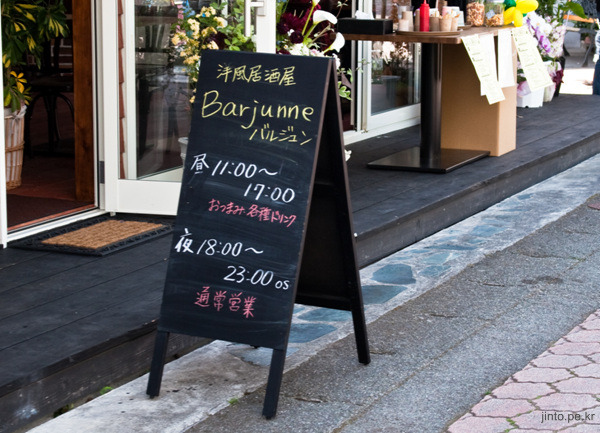 洋風居酒屋
Barjunne
バルジュン
昼 11:00〜
17:00
おつまみ 各種ドリンク
夜 18:00〜
23:00 os
通常営業
jinto.pe.kr